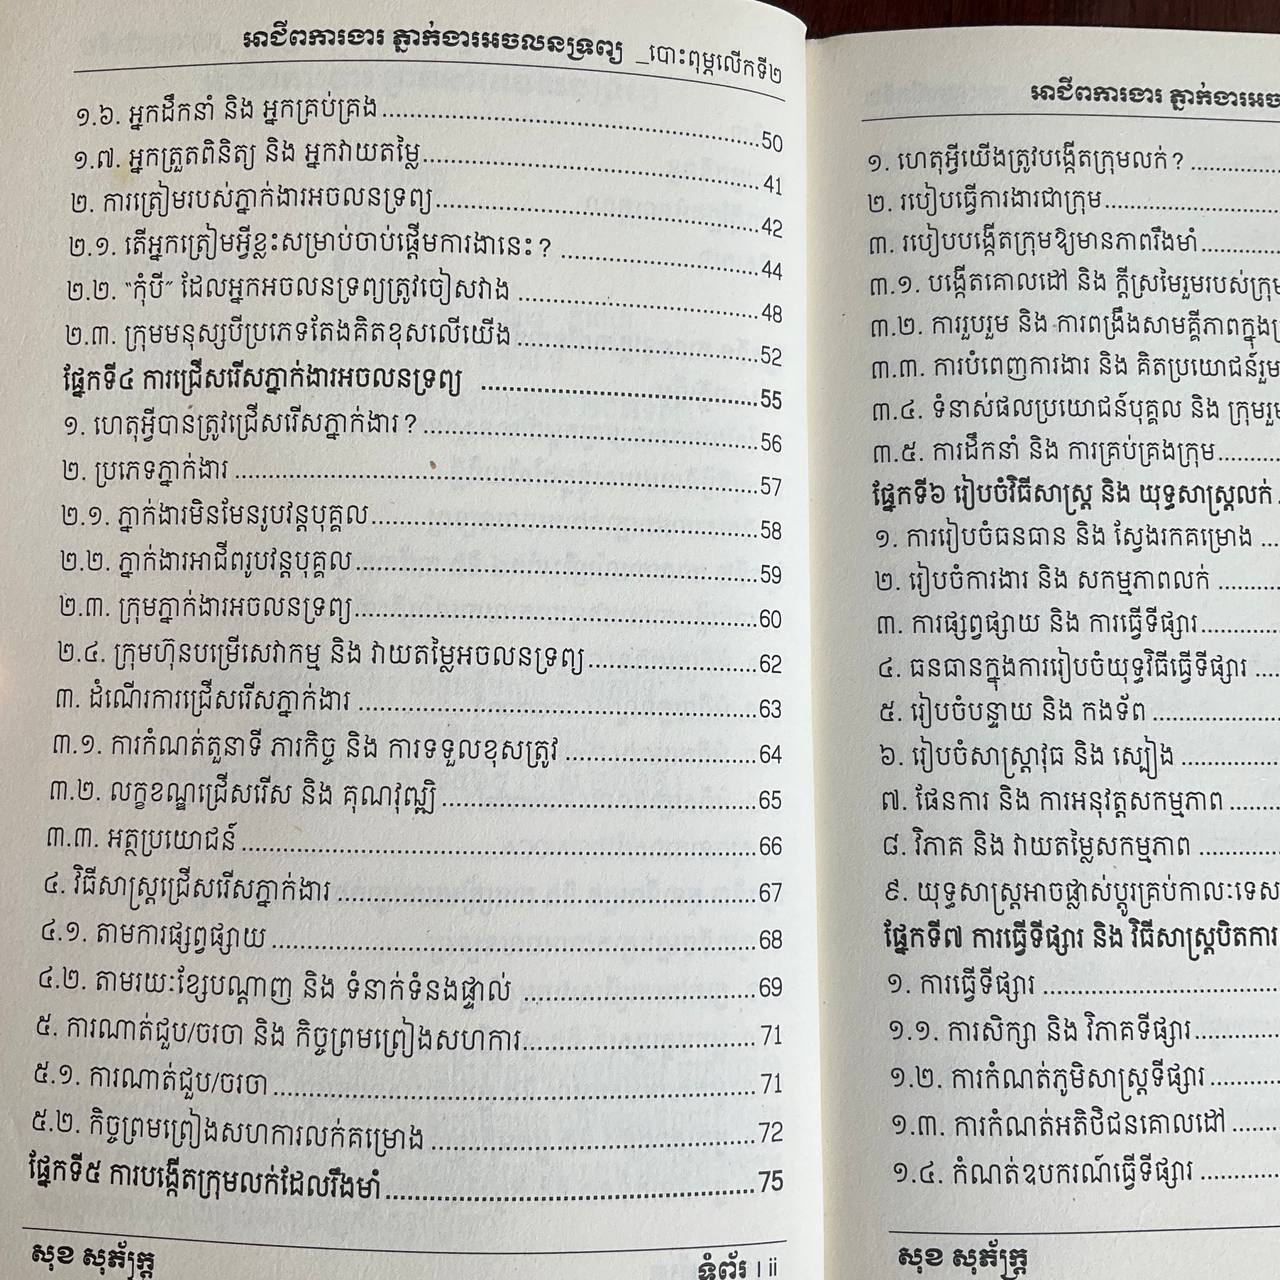 អាជីពការងារ ភ្នាក់ងារអចលនទ្រព្យ _បោះពុម្ភលើកទី២
១.៦. អ្នកដឹកនាំ និង អ្នកគ្រប់គ្រង....................50
១.៧. អ្នកត្រួតពិនិត្យ និង អ្នកវាយតម្លៃ....................41
២. ការត្រៀមរបស់ភ្នាក់ងារអចលនទ្រព្យ....................42
២.១. តើអ្នកត្រៀមអ្វីខ្លះសម្រាប់ចាប់ផ្តើមការងារនេះ? ....................44
២.២. “កុំបី” ដែលអ្នកអចលនទ្រព្យត្រូវចៀសវាង ....................48
២.៣. ក្រុមមនុស្សបីប្រភេទតែងគិតខុសលើយើង ....................52
ផ្នែកទី៤ ការជ្រើសរើសភ្នាក់ងារអចលនទ្រព្យ ....................55
១. ហេតុអ្វីបានត្រូវជ្រើសរើសភ្នាក់ងារ? ....................56
២. ប្រភេទភ្នាក់ងារ ....................57
២.១. ភ្នាក់ងារមិនមែនរូបវន្តបុគ្គល....................58
២.២. ភ្នាក់ងារអាជីពរូបវន្តបុគ្គល....................59
២.៣. ក្រុមភ្នាក់ងារអចលនទ្រព្យ....................60
២.៤. ក្រុមហ៊ុនបម្រើសេវាកម្ម និង វាយតម្លៃអចលនទ្រព្យ....................62
៣. ដំណើរការជ្រើសរើសភ្នាក់ងារ ....................63
៣.១. ការកំណត់តួនាទី ភារកិច្ច និង ការទទួលខុសត្រូវ ....................64
៣.២. លក្ខខណ្ឌជ្រើសរើស និង គុណវុឌ្ឍិ ....................65
៣.៣. អត្ថប្រយោជន៍ ....................66
៤. វិធីសាស្ត្រជ្រើសរើសភ្នាក់ងារ ....................67
៤.១. តាមការផ្សព្វផ្សាយ ....................68
៤.២. តាមរយៈខ្សែបណ្តាញ និង ទំនាក់ទំនងផ្ទាល់ ....................69
៥. ការណាត់ជួប/ចរចា និង កិច្ចព្រមព្រៀងសហការ....................71
៥.១. ការណាត់ជួប/ចរចា ....................71
៥.២. កិច្ចព្រមព្រៀងសហការលក់គម្រោង ....................72
ផ្នែកទី៥ ការបង្កើតក្រុមលក់ដែលរឹងមាំ....................75
សុខ សុភ័ក្ត្រ ទំព័រ | ii
អាជីពការងារ ភ្នាក់ងារអច
១. ហេតុអ្វីយើងត្រូវបង្កើតក្រុមលក់? ....................
២. របៀបធ្វើការងារជាក្រុម....................
៣. របៀបបង្កើតក្រុមឱ្យមានភាពរឹងមាំ....................
៣.១. បង្កើតគោលដៅ និង ក្តីស្រមៃរួមរបស់ក្រុម
៣.២. ការរួបរួម និង ការពង្រឹងសាមគ្គីភាពក្នុង
៣.៣. ការបំពេញការងារ និង គិតប្រយោជន៍រួម
៣.៤. ទំនាស់ផលប្រយោជន៍បុគ្គល និង ក្រុមរួម
៣.៥. ការដឹកនាំ និង ការគ្រប់គ្រងក្រុម....................
ផ្នែកទី៦ រៀបចំវិធីសាស្ត្រ និង យុទ្ធសាស្ត្រលក់ .
១. ការរៀបចំធនធាន និង ស្វែងរកគម្រោង ...
២. រៀបចំការងារ និង សកម្មភាពលក់ ..........
៣. ការផ្សព្វផ្សាយ និង ការធ្វើទីផ្សារ............
៤. ធនធានក្នុងការរៀបចំយុទ្ធវិធីធ្វើទីផ្សារ ....
៥. រៀបចំបន្ទាយ និង កងទ័ព ....................
៦. រៀបចំសាស្ត្រាវុធ និង ស្បៀង ...............
៧. ផែនការ និង ការអនុវត្តសកម្មភាព .........
៨. វិភាគ និង វាយតម្លៃសកម្មភាព ..............
៩. យុទ្ធសាស្ត្រអាចផ្លាស់ប្តូរគ្រប់កាលៈទេស
ផ្នែកទី៧ ការធ្វើទីផ្សារ និង វិធីសាស្ត្របិតការ
១. ការធ្វើទីផ្សារ ....................
១.១. ការសិក្សា និង វិភាគទីផ្សារ..............
១.២. ការកំណត់ភូមិសាស្ត្រទីផ្សារ............
១.៣. ការកំណត់អតិថិជនគោលដៅ ..........
១.៤. កំណត់ឧបករណ៍ធ្វើទីផ្សារ ..............
សុខ សុភ័ក្ត្រ